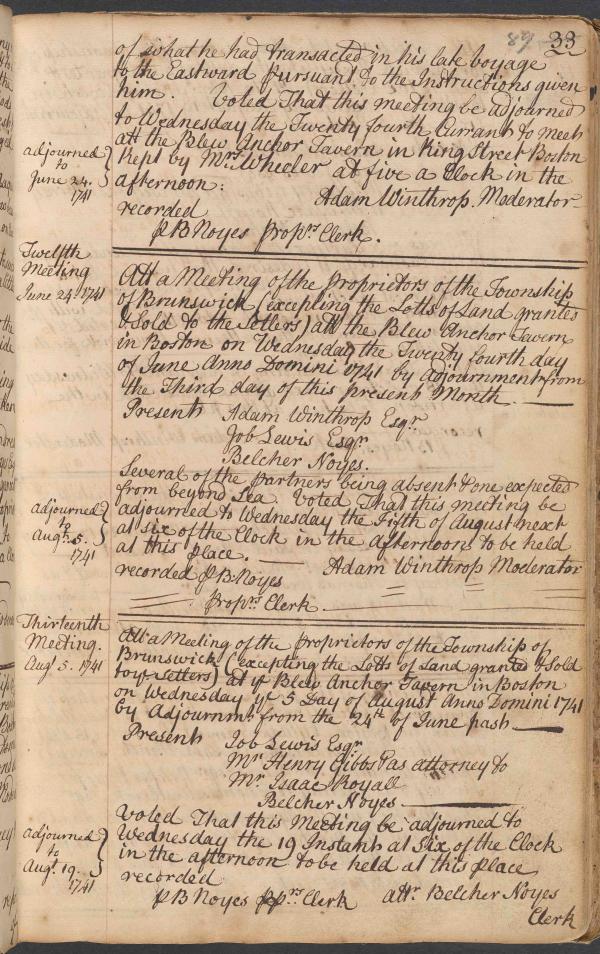 89 33
of what he had transacted in his late boyage
to the Eastward pursuant to the Instructions given
him. Voted That this meeting be adjourned
to Wednesday the Twenty fourth Currant to meet
att the Blew Anchor Tavern in King Street Boston
kept by Mrs. Wheeler at five a Clock in the
afternoon:
Adam Winthrop. Moderator
adjourned
to
June 24.
1741
recorded
P B Noyes Proprs Clerk.
Twelfth
Meeting
June 24 1741
Att a Meeting of the Proprietors of the Township
of Brunswick (excepting the Lotts of Land grantes
& Sold to the Setlers) att the Blew Anchor Tavern
in Boston on Wednesday the Twenty fourth day
of June Anno Domini 1741 by adjournment from
the Third day of this present Month.
Present Adam Winthrop Esqr.
Job Lewis Esqr
Belcher Noyes.
Several of the Partners being absent & one expected
from beyond Sea. Voted That this meeting be
adjourned to Wednesday the Fifth of August next
at six of the Clock in the afternoon to be held
at this place.
Adam Winthrop Moderator
adjourned
to
Augt. 5.
1741
recorded P B. Noyes
Proprs Clerk
Thirteenth
Meeting.
Augt 5. 1741
Att a Meeting of the Proprietors of the Township of
Brunswick (excepting the Lotts of Land granted & Sold
to ye Setlers) at ye Blew Anchor Tavern in Boston
on Wednesday ye 5 Day of August Anno Domini 1741
by Adjournmt. from the 24th of June past
Present Job Lewis Esqr
Mr Henry Gibbs as attorney to
Mr. Isaac Royall
Belcher Noyes
Voted That this Meeting be adjourned to
Wednesday the 19 Instant at Six of the Clock
in the afternoon to be held at this place
adjourned
to
Augt. 19.
1741
recorded
P B Noyes Proprs Clerk attr. Belcher Noyes
Clerk